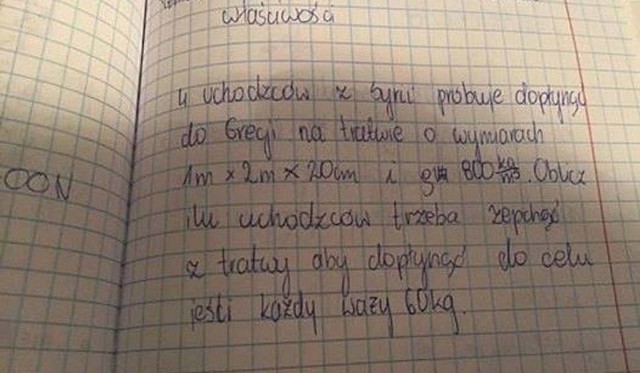 właściwości
4 uchodzców z Syrii próbuje dopłynąć
do Grecji na tratwie o wymiarach
OON
1m × 2m × 20cm i 800 kg/m³. Oblicz
ilu uchodzców trzeba zepchąć
z tratwy aby dopłynąć do celu
jeśli każdy waży 60kg.